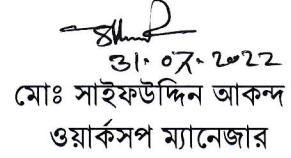 31.07.2022
মোঃ সাইফউদ্দিন আকন্দ
ওয়ার্কসপ ম্যানেজার